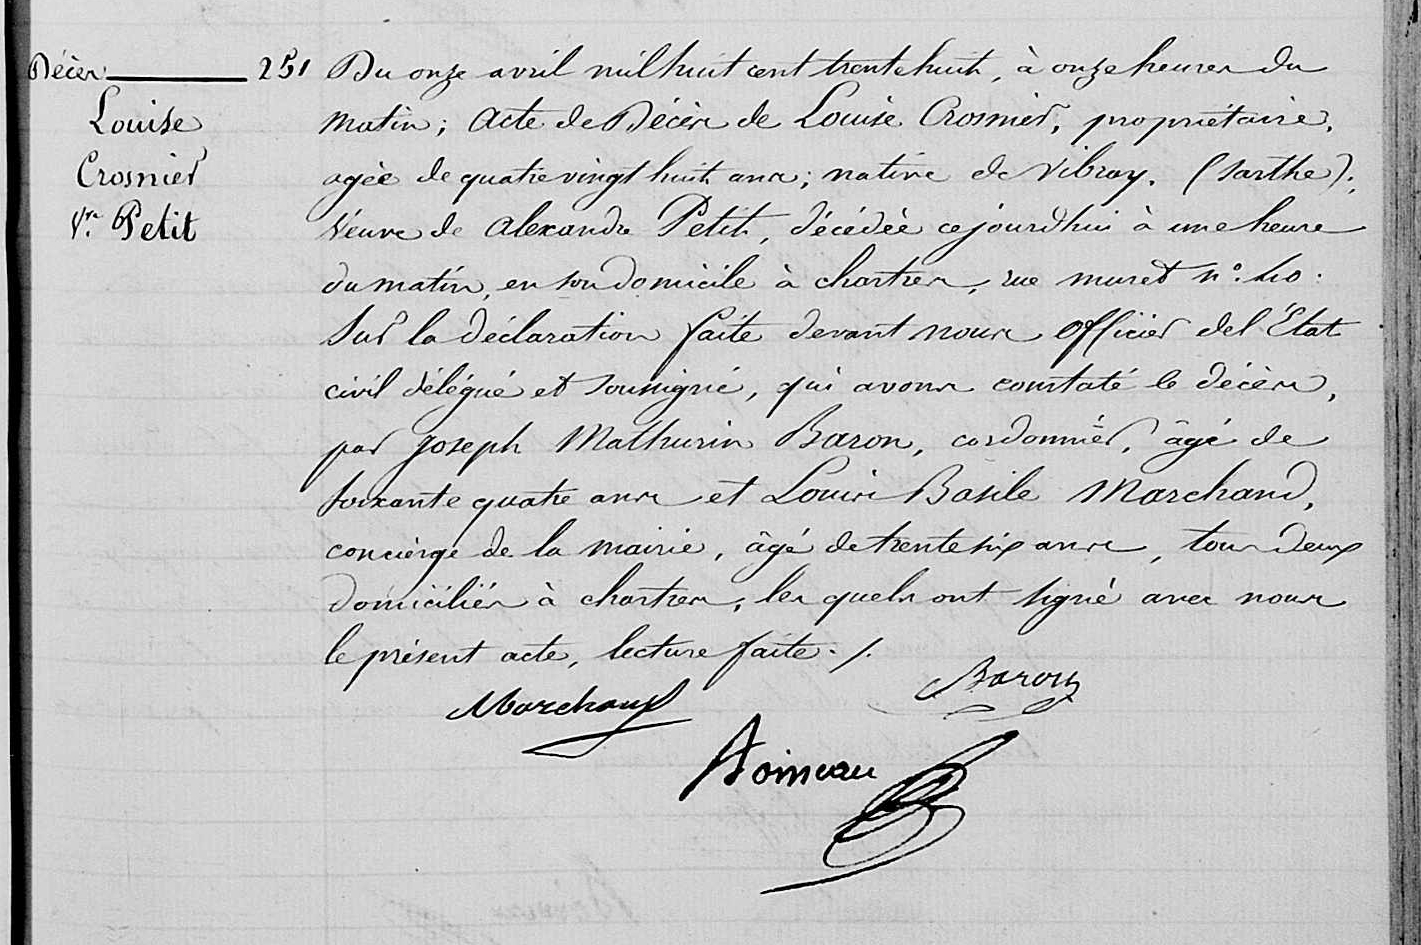 Décès 251
Louise
Crosnier
Vve. Petit
Du onze avril mil huit cent trente huit, à onze heures du
matin; acte de Décès de Louise Crosnier, propriétaire,
agée de quatre vingt huit ans; native de Vibray. (Sarthe).
Veuve de Alexandre Petit, décédée cejourdhui à une heure
du matin, en son domicile à chartres, rue muret n°. 40.
Sur la déclaration faite devant nous officier de l'État
civil délégué et soussigné, qui avons constaté le décès,
par Joseph Mathurin Baron, cordonnier, âgé de
soixante quatre ans et Louis Basile Marchand,
concierge de la mairie, âgé de trente six ans, tous deux
domiciliés à chartres, les quels ont signé avec nous
le présent acte, lecture faite./.
Marchand
Baron